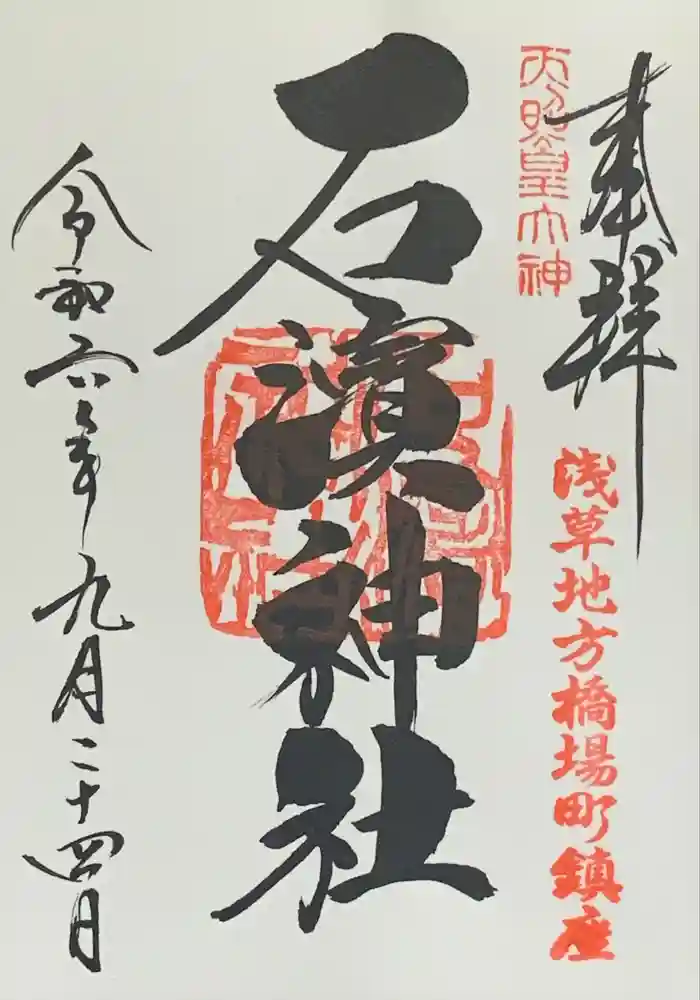 奉拝
天照皇大神
浅草地方橋場町鎮座
石濱神社
令和六年九月二十四日